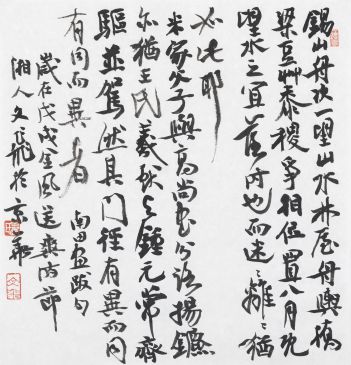 錫山舟次一望山水林屋舟輿橋
梁豆艸黍稷爭相位置八月既
望水之宜 也而迷〻離〻猶
如此耶
米家父子與高尚書分路揚鑣
亦猶王氏羲獻與鍾元常齊
驅並駕然其門徑有異而同
有同而異者 南田畫跋句
歲在戊戌金風送爽時節
湘人文 於京華